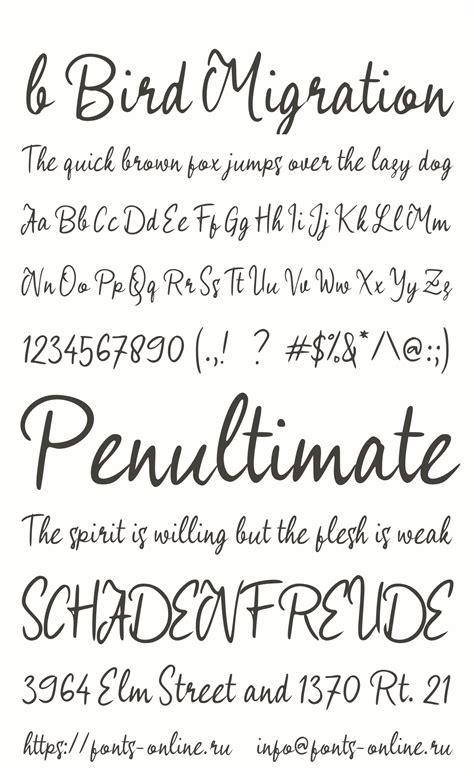 b Bird Migration
The quick brown fox jumps over the lazy dog
Aa Bb Cc Dd Ee Ff Gg Hh Ii Jj Kk Ll Mm
Nn Oo Pp Qq Rr Ss Tt Uu Vv Ww Xx Yy Zz
1234567890 (.,! ? #$%&*/\@:;)
Penultimate
The spirit is willing but the flesh is weak
SCHADENFREUDE
3964 Elm Street and 1370 Rt. 21
https://fonts-online.ru info@fonts-online.ru